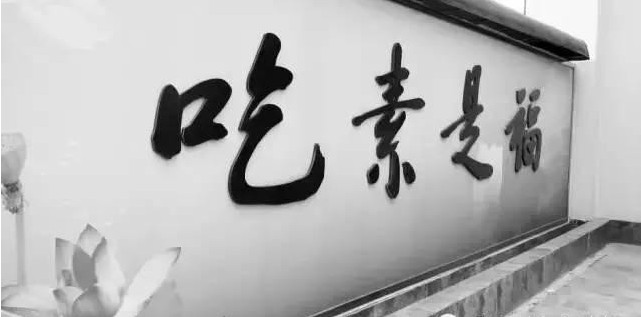 吃素是福